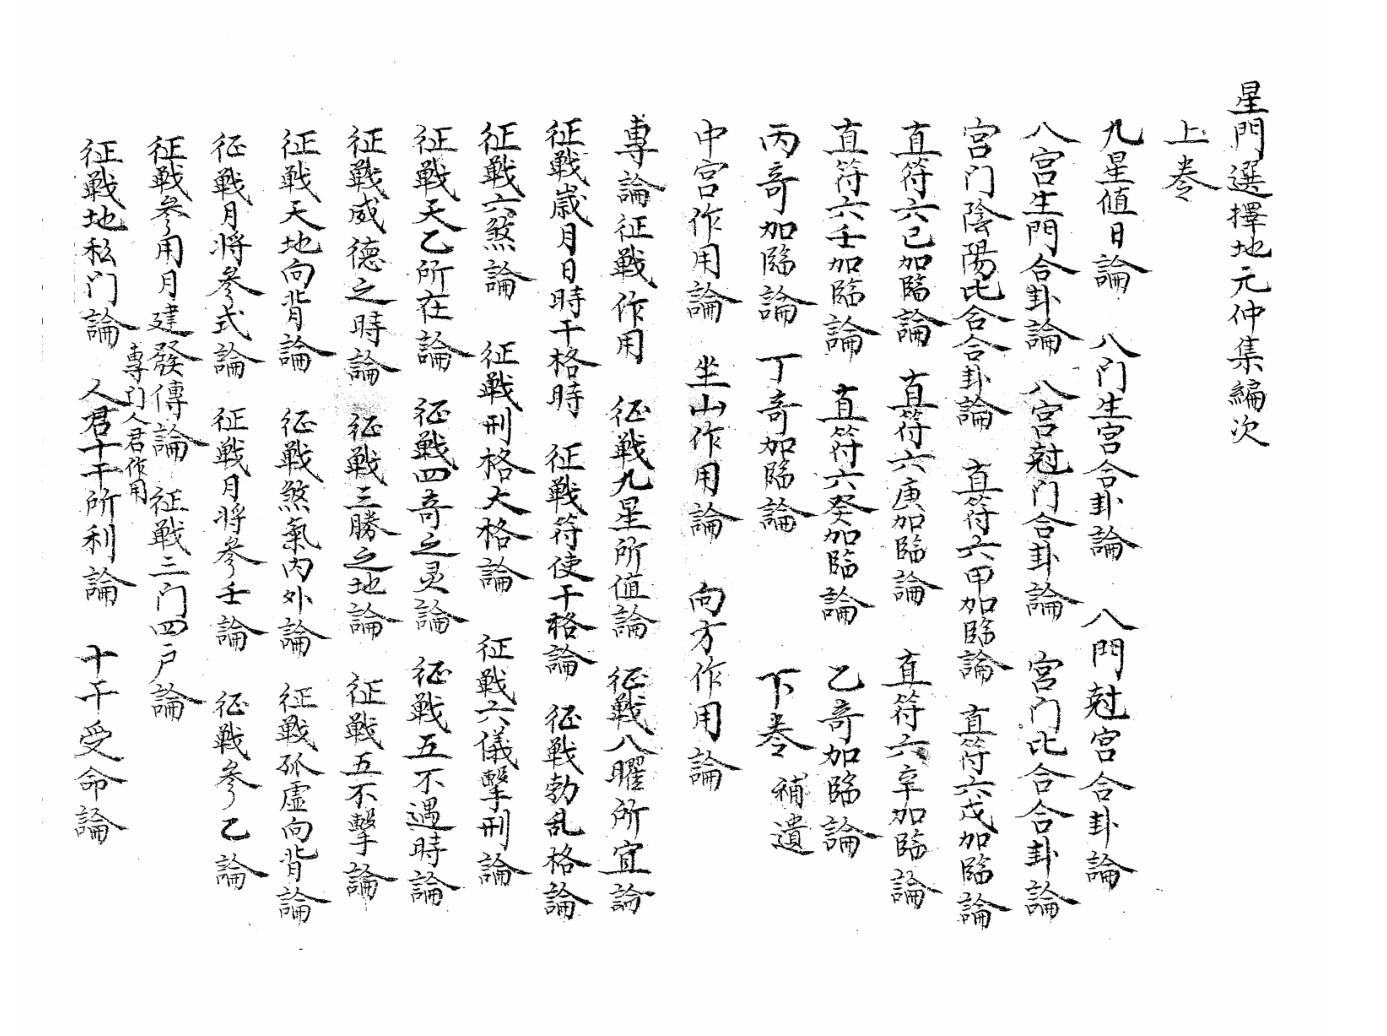 星門選擇地元仲集編次
上巻
九星值日論　八门生宮合卦論　八門尅宮合卦論
八宮生門合卦論　八宮尅门合卦論　宮门比合合卦論
宮门陰陽比合合卦論　直符六甲加臨論　直符六戊加臨論
直符六己加臨論　直符六庚加臨論　直符六辛加臨論
直符六壬加臨論　直符六癸加臨論　乙竒加臨論
丙竒加臨論　丁竒加臨論　下巻　補遺
中宮作用論　坐山作用論　向方作用論
專論征戰作用　征戰九星所值論　征戰八曜所宜論
征戰歲月日時干格時　征戰符使干格論　征戰勃乱格論
征戰六煞論　征戰刑格大格論　征戰六儀擊刑論
征戰天乙所在論　征戰四竒之灵論　征戰五不遇時論
征戰威德之時論　征戰三勝之地論　征戰五不擊論
征戰天地向背論　征戰煞氣内外論　征戰孤虚向背論
征戰月将參式論　征戰月将參壬論　征戰參乙論
征戰參用月建發傳論　征戰三门四户論
專门人君作用
征戰地私门論　人君十干所利論　十干受命論